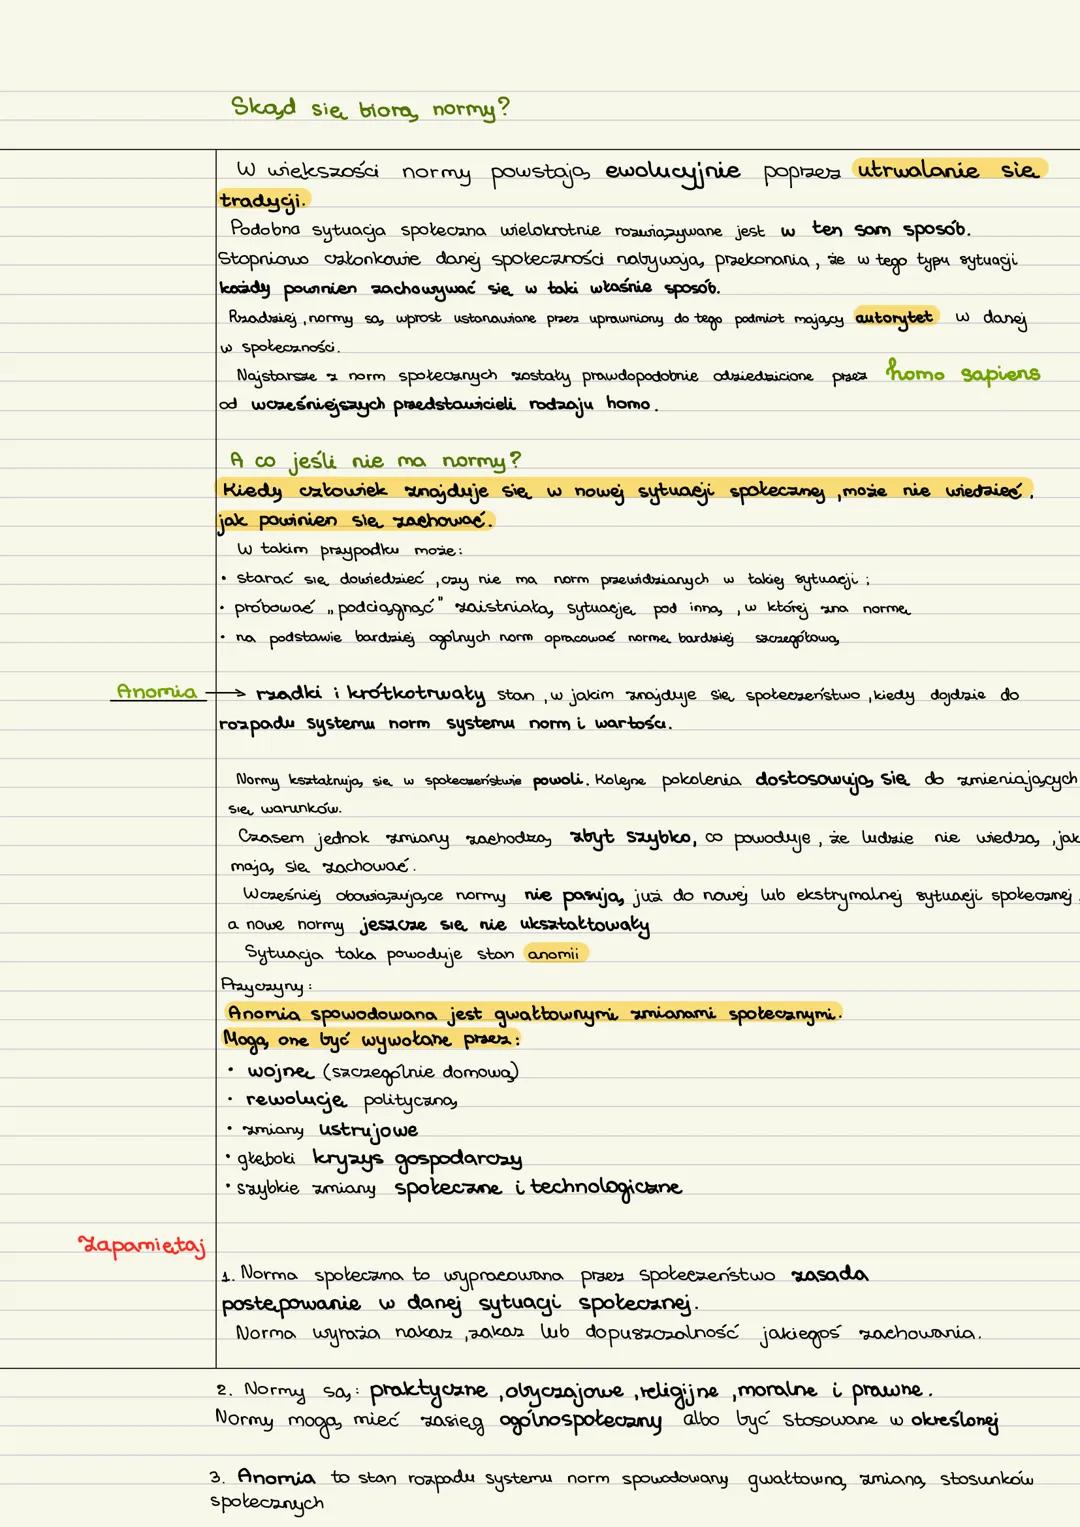 Skąd się biorą normy?
W większości normy powstają ewolucyjnie poprzez utrwalanie się
tradycji.
Podobna sytuacja społeczna wielokrotnie rozwiązywane jest w ten sam sposób.
Stopniowo członkowie danej społeczności nabywają przekonania, że w tego typu sytuacji
każdy powinien zachowywać się w taki właśnie sposób.
Rzadziej, normy są wprost ustanawiane przez uprawniony do tego podmiot mający autorytet w danej
w społeczności.
Najstarsze z norm społecznych zostały prawdopodobnie odziedziczone przez homo sapiens
od wcześniejszych przedstawicieli rodzaju homo.
A co jeśli nie ma normy?
Kiedy człowiek znajduje się w nowej sytuacji społecznej, może nie wiedzieć,
jak powinien się zachować.
W takim przypadku może:
• starać się dowiedzieć, czy nie ma norm przewidzianych w takiej sytuacji;
• próbować „podciągnąć" zaistniałą sytuację pod inną, w której zna normę
• na podstawie bardziej ogólnych norm opracować normę bardziej szczegółową
Anomia → rzadki i krótkotrwały stan, w jakim znajduje się społeczeństwo, kiedy dojdzie do
rozpadu systemu norm systemu norm i wartości.
Normy kształtują się w społeczeństwie powoli. Kolejne pokolenia dostosowują się do zmieniających
się warunków.
Czasem jednak zmiany zachodzą zbyt szybko, co powoduje, że ludzie nie wiedzą, jak
mają się zachować.
Wcześniej obowiązujące normy nie pasują już do nowej lub ekstrymalnej sytuacji społecznej,
a nowe normy jeszcze się nie ukształtowały
Sytuacja taka powoduje stan anomii
Przyczyny:
Anomia spowodowana jest gwałtownymi zmianami społecznymi.
Mogą one być wywołane przez:
• wojnę (szczególnie domową)
• rewolucję polityczną
• zmiany ustrojowe
• głęboki kryzys gospodarczy
• szybkie zmiany społeczne i technologiczne
Zapamiętaj
1. Norma społeczna to wypracowana przez społeczeństwo zasada
postępowanie w danej sytuacji społecznej.
Norma wyraża nakaz, zakaz lub dopuszczalność jakiegoś zachowania.
2. Normy są: praktyczne, obyczajowe, religijne, moralne i prawne.
Normy mogą mieć zasięg ogólnospołeczny albo być stosowane w określonej
3. Anomia to stan rozpadu systemu norm spowodowany gwałtowną zmianą stosunków
społecznych